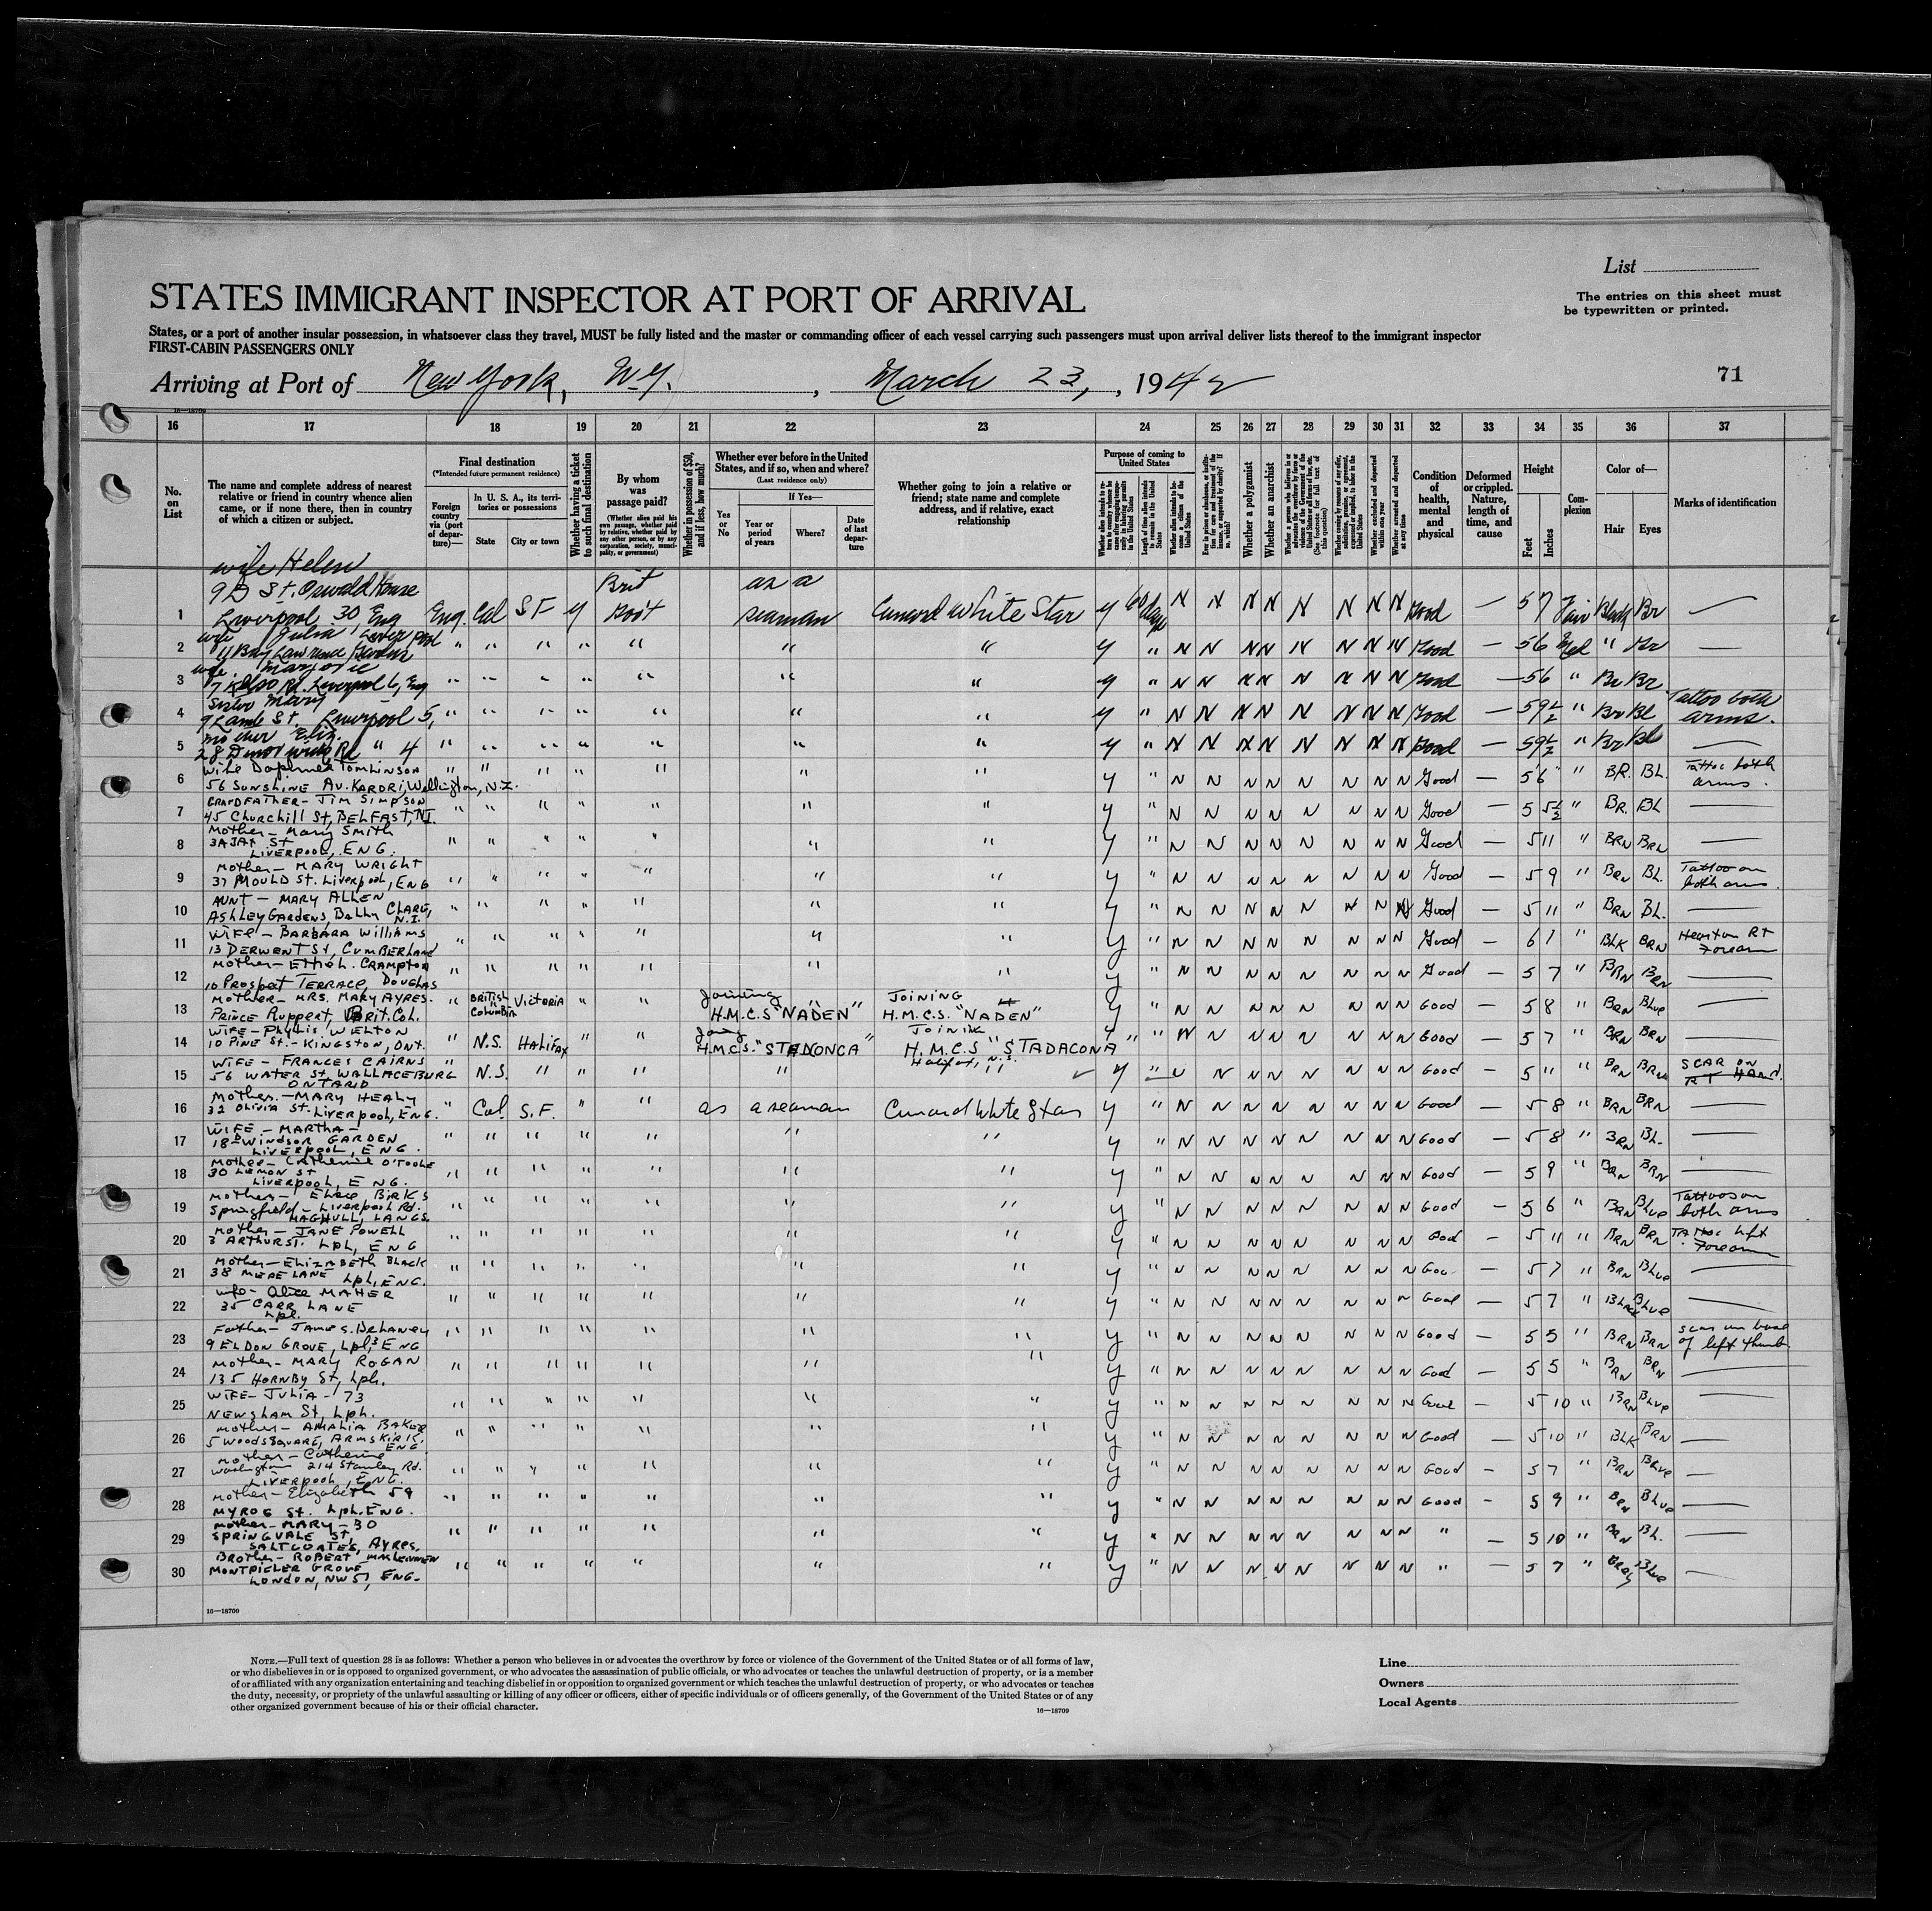 List
STATES IMMIGRANT INSPECTOR AT PORT OF ARRIVAL
The entries on this sheet must
be typewritten or printed.
States, or a port of another insular possession, in whatsoever class they travel, MUST be fully listed and the master or commanding officer of each vessel carrying such passengers must upon arrival deliver lists thereof to the immigrant inspector
FIRST-CABIN PASSENGERS ONLY
Arriving at Port of New York, N.Y. , March 23, , 1942
71
16—18709
16 17 18 19 20 21 22 23 24 25 26 27 28 29 30 31 32 33 34 35 36 37
No. on List
The name and complete address of nearest relative or friend in country whence alien came, or if none there, then in country of which a citizen or subject.
Final destination
(*Intended future permanent residence)
Foreign country via (port of departure)—
In U. S. A., its territories or possessions
State
City or town
Whether having a ticket to such final destination
By whom was passage paid?
(Whether alien paid his own passage, whether paid by relative, whether paid by any other person, or by any corporation, society, municipality, or government)
Whether in possession of $50, and if less, how much?
Whether ever before in the United States, and if so, when and where?
(Last residence only)
Yes or No
If Yes—
Year or period of years
Where?
Date of last departure
Whether going to join a relative or friend; state name and complete address, and if relative, exact relationship
Purpose of coming to United States
Length of time alien intends to remain in the United States
Whether alien intends to become a citizen of the United States
Whether a polygamist
Whether an anarchist
Whether excluded and deported within one year
Whether arrested and deported at any time
Condition of health, mental and physical
Deformed or crippled. Nature, length of time, and cause
Height
Feet
Inches
Complexion
Color of—
Hair
Eyes
Marks of identification
wife Helen
9D St. Oswald House
1 Liverpool 30 Eng Eng. Cal S F y Brit Govt as a seaman Cunard White Star y 60 days N N N N N N N N Good — 5 7 Fair Black Br —
wife Julia Liverpool
2 Lawrence Gardens " " " " " " " y " N N N N N N N N Good — 5 6 Med " Br —
wife Marjorie
3 7 Kelso Rd. Liverpool 6, Eng " " " " " " " y " N N N N N N N N Good — 5 6 " Br Br
Sister Mary
4 9 Lamb St. Liverpool 5, " " " " " " " y " N N N N N N N N Good — 5 9½ " Br Bl Tattoo both arms.
Mother Eliz.
5 28 Rd " 4 " " " " " " " y " N N N N N N N N Good — 5 9½ " Br Bl —
Wife Daphne Tomlinson
6 56 Sunshine Av. Karori, Wellington, N.Z. " " " " " " " y " N N N N N N N N Good — 5 6 " BR. BL. Tattoo both arms.
Grandfather - Jim Simpson
7 45 Churchill St, Belfast, N.I. " " " " " " " y " N N N N N N N N Good — 5 5½ " BR. BL —
Mother - Mary Smith
8 3 Ajax St Liverpool, Eng. " " " " " " " y " N N N N N N N N Good — 5 11 " BRN BRN —
Mother - Mary Wright
9 37 Mould St. Liverpool, Eng " " " " " " " y " N N N N N N N N Good — 5 9 " BRN BL. Tattoo on both arms.
Aunt - Mary Allen
10 Ashley Gardens, Bally Clare, N.I. " " " " " " " y " N N N N N N N N Good — 5 11 " BRN BL. —
Wife - Barbara Williams
11 13 Derwent St, Cumberland " " " " " " " y " N N N N N N N N Good — 6 1 " BLK BRN Heart on Rt Forearm
12 10 Prospect Terrace, Douglas " " " " " " " y " N N N N N N N N Good — 5 7 " BRN BRN —
Mother - Mrs. Mary Ayres.
13 Prince Ruppert, Brit. Col. " British Columbia Victoria " " Joining H.M.C.S "NADEN" JOINING H.M.C.S. "NADEN" y " N N N N N N N N Good — 5 8 " BRN Blue —
Wife - Phyllis Welton
14 10 Pine St. - Kingston, Ont. " N.S. Halifax " " H.M.C.S. JOINING H.M.C.S "STADACONA" Halifax, N.S. y " N N N N N N N N Good — 5 7 " BRN BRN —
Wife - Frances Cairns
15 56 Water St, Wallaceburg Ontario " N.S. " " " " " y " N N N N N N N Good — 5 11 " BRN BRN Scar on RT Hand.
Mother - Mary Healy
16 32 Olivia St. Liverpool, Eng. " Cal. S.F. " " as a seaman Cunard White Star y " N N N N N N N N Good — 5 8 " BRN BRN —
Wife - Martha -
17 18D Windsor Garden Liverpool, Eng. " " " " " " " y " N N N N N N N N Good — 5 8 " BRN BL. —
Mother - Catherine O'Toole
18 30 Lemon St Liverpool, Eng. " " " " " " " y " N N N N N N N N Good — 5 9 " BRN BRN —
Mother - Birks
19 Springfield - Liverpool Rd. Maghull, Langs. " " " " " " " y " N N N N N N N N Good — 5 6 " BRN Blue Tattoos on both arms
Mother - Jane Powell
20 3 Arthur St. Lpl, Eng " " " " " " " y " N N N N N N N N Good — 5 11 " BRN BRN Tattoo left Forearm
Mother - Elizabeth Black
21 38 Mere Lane Lpl, Eng. " " " " " " " y " N N N N N N N N Goo — 5 7 " BRN Blue —
Wife - Alice Maher
22 35 Carr Lane Lpl. " " " " " " " y " N N N N N N N N Good — 5 7 " Black Blue —
Father - James. Delaney
23 9 Eldon Grove, Lpl, 3 Eng " " " " " " " y " N N N N N N N N Good — 5 5 " BRN BRN Scar on base of left thumb.
Mother - Mary Rogan
24 135 Hornby St, Lpl. " " " " " " " y " N N N N N N N N Good — 5 5 " BRN BRN —
Wife - Julia - 73
25 Newsham St, Lpl. " " " " " " " y " N N N N N N N N Good — 5 10 " BRN Blue —
Mother - Amalia Baker
26 5 Woods Square, Armskirk. Eng. " " " " " " " y " N N N N N N N N Good — 5 10 " BLK BRN —
Mother - Catherine
27 214 Stanley Rd. Liverpool, Eng. " " " " " " " y " N N N N N N N N Good — 5 7 " BRN Blue —
Mother - Elizabeth 59
28 Myrog St. Lpl. Eng. " " " " " " " y " N N N N N N N N Good — 5 9 " BRN Blue —
Mother - Mary - 30
29 Springvale St, Saltcoates, Ayres. " " " " " " " y " N N N N N N N N " — 5 10 " BRN BL. —
Brother - Robert
30 Montpieler Grove London, NW5, Eng. " " " " " " " y " N N N N N N N N " — 5 7 " Gray Blue —
16—18709
NOTE.—Full text of question 28 is as follows: Whether a person who believes in or advocates the overthrow by force or violence of the Government of the United States or of all forms of law,
or who disbelieves in or is opposed to organized government, or who advocates the assassination of public officials, or who advocates or teaches the unlawful destruction of property, or is a member
of or affiliated with any organization entertaining and teaching disbelief in or opposition to organized government or which teaches the unlawful destruction of property, or who advocates or teaches
the duty, necessity, or propriety of the unlawful assaulting or killing of any officer or officers, either of specific individuals or of officers generally, of the Government of the United States or of any
other organized government because of his or their official character.
16—18709
Line
Owners
Local Agents